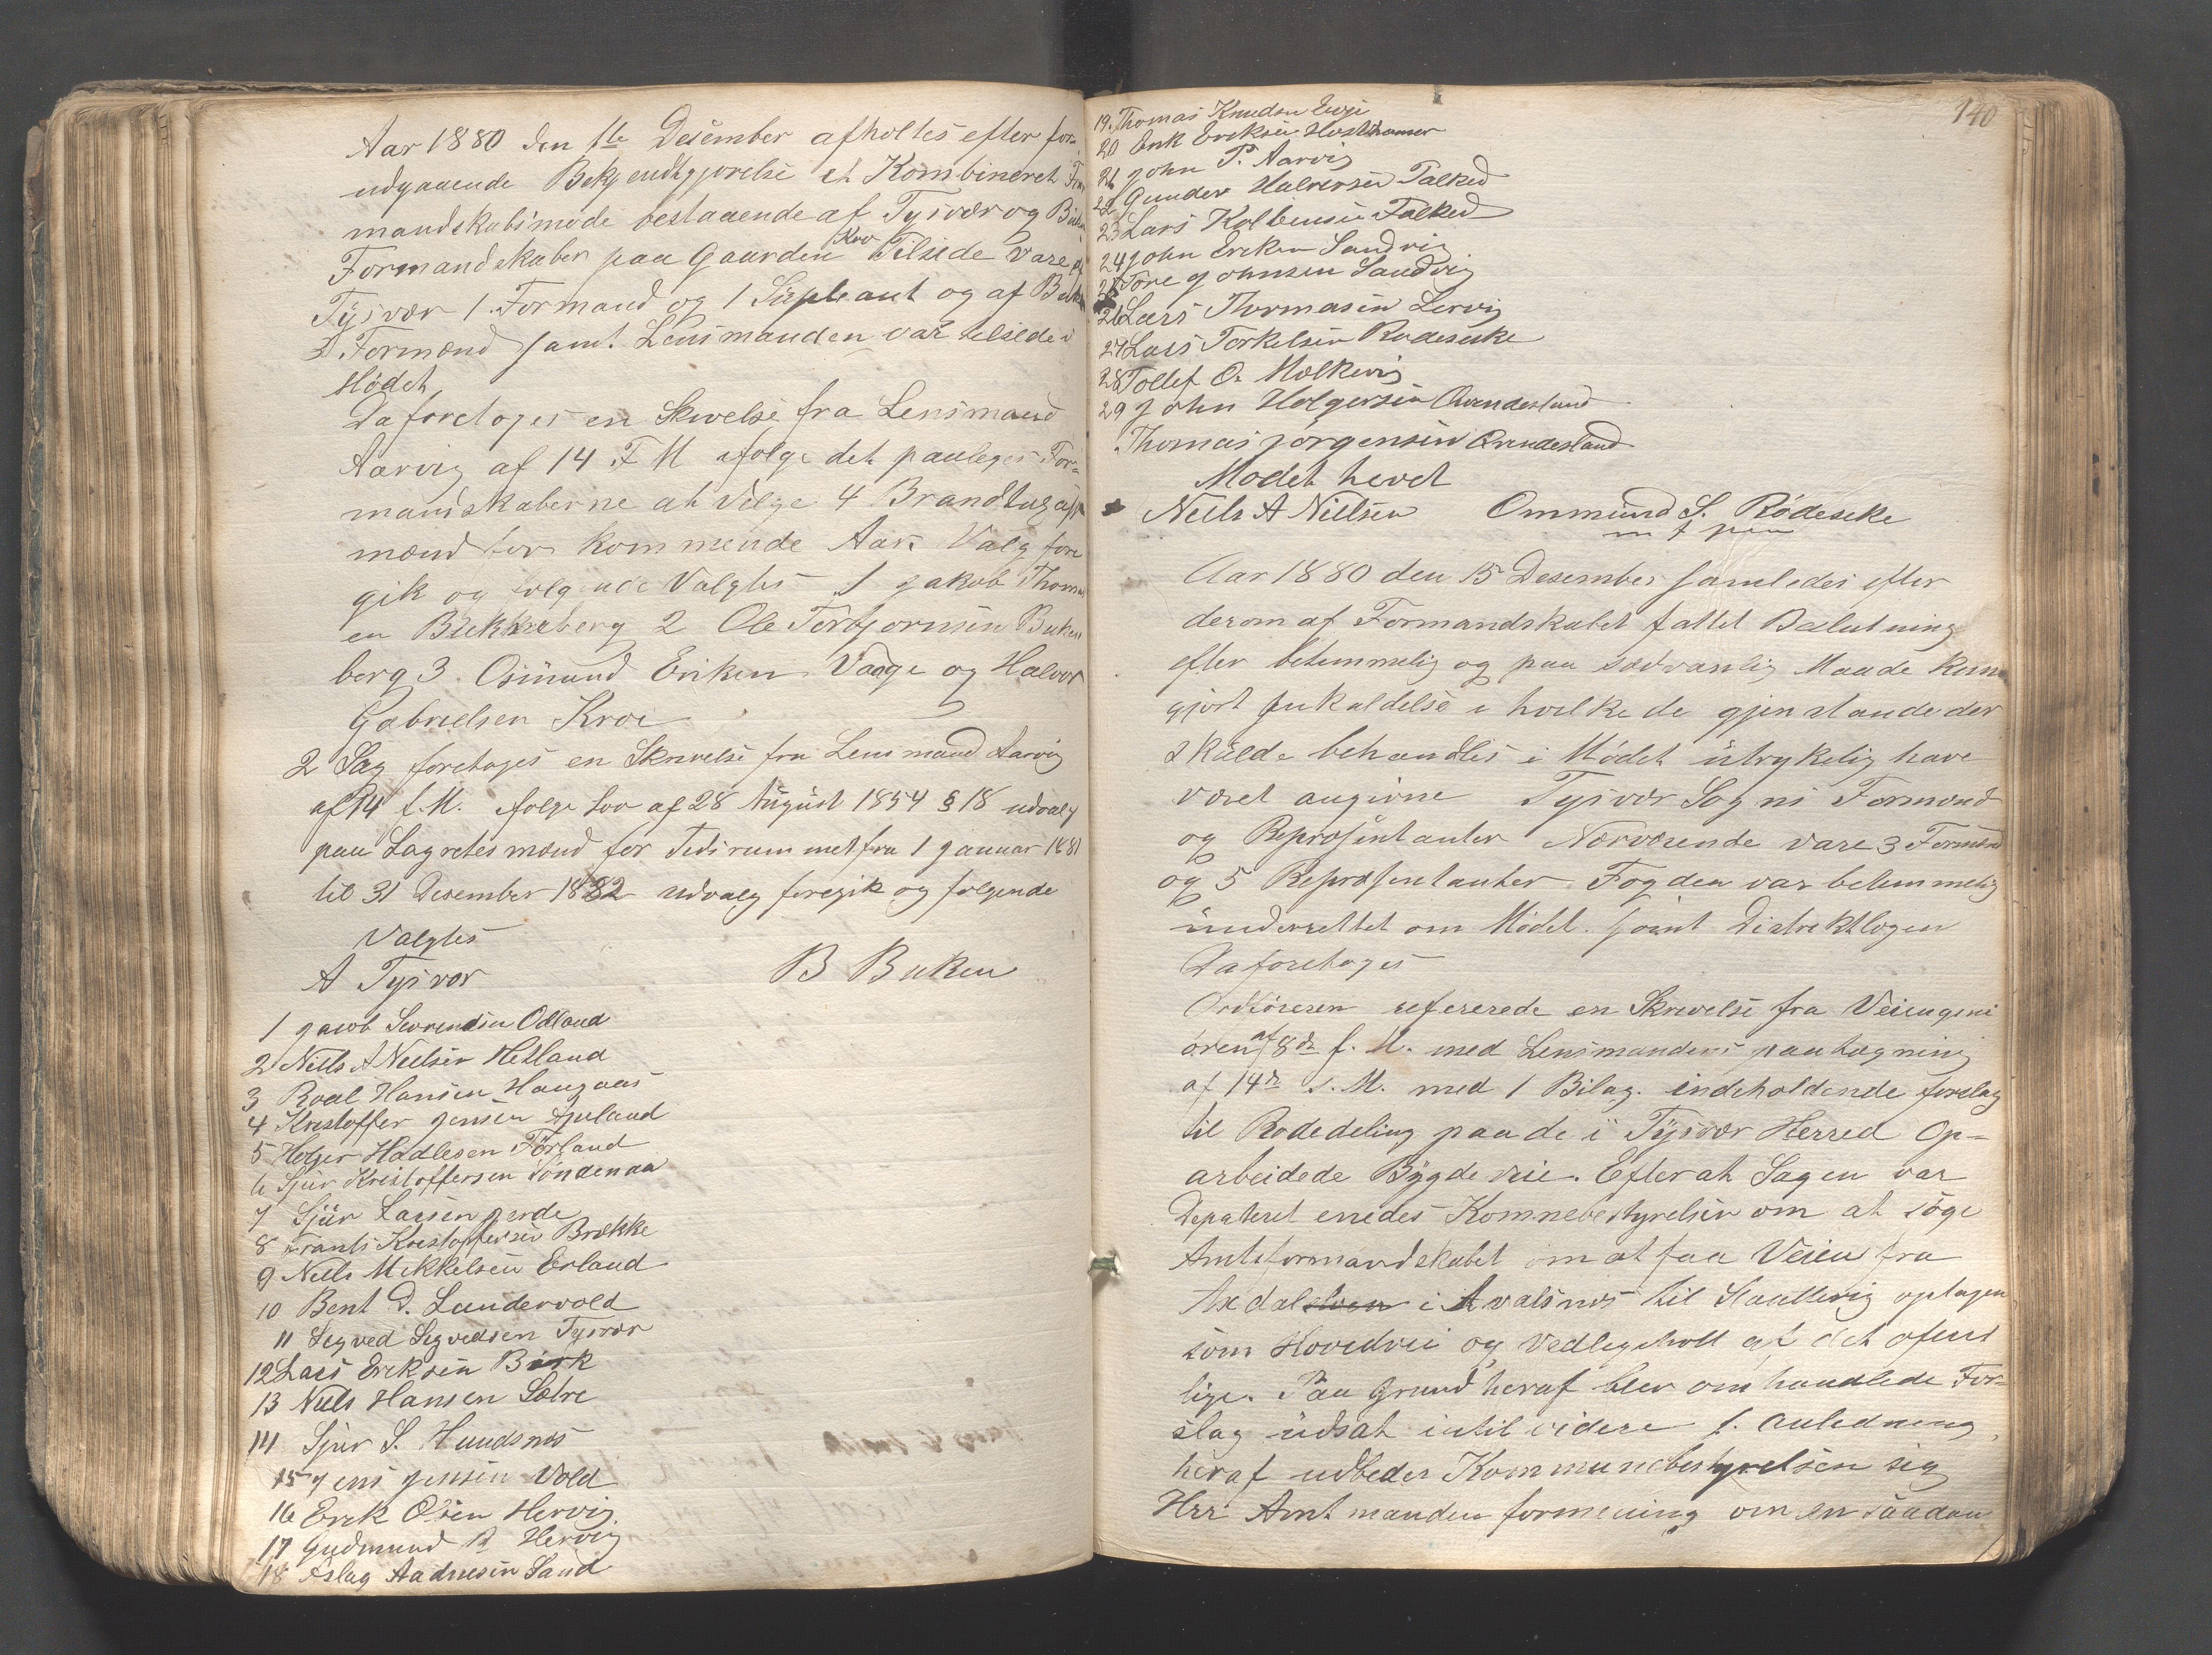 Aar 1880 den 1te Desember afholtes efter for-
udgaaende Bekjendtgjørelse et Kombineret For
mandskabsmøde bestaaende af Tysvær og Buken
Formandskaber paa Gaarden Kro Tilstede vare af
Tysvær 1 Formand og 1 Supleant og af Buken
3 Formænd samt Lensmanden var tilstede i
Mødet
Da foretoges en Skrivelse fra Lensmand
Aarvig af 14 F M ifølge det paaleges For-
mandskaberne at Velge 4 Brandtugts
mænd for kommende Aar. Valg fore
gik og følgende Valgtes 1 Jakob Thoms
en Bukkeberg 2 Ole Torbjørnsen Buken
berg 3 Osmund Eriksen Vaage og Halvor
Gabrielsen Kroe
2 Sag foretoges en Skrivelse fra Lensmand Aarvig
af 14 f. M. ifølge Lov af 28 August 1854 § 18 udvalg
paa Lagretesmænd for Tidsrummet fra 1 Januar 1881
til 31 Desember 1882 udvalg foregik og følgende
Valgtes
A Tysvær B Buken
1 Jacob Sevrendsen Odland
2 Niels A Nielsen Hetland
3 Roal Hansen Haugaas
4 Kristoffer Jensen Apeland
5 Holger Hadlesen Førland
6 Sjur Kristoffersen Søndenaa
7 Sjur Larsen Gjerde
8 Frants Kristoffersen Brække
9 Niels Mikkelsen Erland
10 Bent D. Landervold
11 Segved Segvedsen Tysvær
12 Lars Eriksen Birk
13 Niels Hansen Sætre
14 Sjur S. Hundsnæs
15 Jens Jensen Vold
16 Erik Olsen Hervig
17 Gudmund R Hervig
18 Aslag Aadnesen Sand
140
19. Thomas Knudsen Eeje
20 Erik Eriksen Hesthammer
21 John P. Aarvig
22 Gunder Halversen Falked
23 Lars Kolbensen Falked
24 John Eriksen Sandvig
25 Tore Johnsen Sandvig
26 Lars Thormasen Lervig
27 Lars Torkelsen Rødeseike
28 Tollef O. Mølkevig
29 John Holgersen Qvendesland
Thomas Jørgensen Qvendesland
Mødet hevet
Neils A Nielsen Ommund S. Rødeseike
m f pen
Aar 1880 den 15 Desember samledes efter
derom af Formandskabet fattet Beslutning
efter betimmelig og paa sædvanlig Maade kun
gjort Inkaldelse i hvilke de gjenstande der
skulde behandles i Mødet udtrykelig have
været angivne Tysvær Sogns Formænd
og Repræsentanter Nærværende vare 3 Formænd
og 5 Repræsentanter Fogden var betimmelig
underrettet om Mødet. samt Distriktlægen
Da foretoges
Ordføreren refererede en Skrivelse fra Veiingeni
øren af 8de f. M. med Lensmandens paategning
af 14de s. M. med 1 Bilag. indeholdende forslag
til Rodedeling paa de i Tysvær Herred Op-
arbeidede Bygdeveie. Efter at Sagen var
Depateret enedes Komnebestyrelsen om at søge
Amtsformandskabet om at faa Veien fra
Axdal i Avalsnæs til Hautlevig optagen
som Hovedvei og Vedligeholt af det ofent
lige. Paa Grund heraf blev omhandlede For-
slag udsat intil videre f. anledning
heraf udbeder Kommunebestyrelsen sig
Hrr Amtmanden formening om en saadan